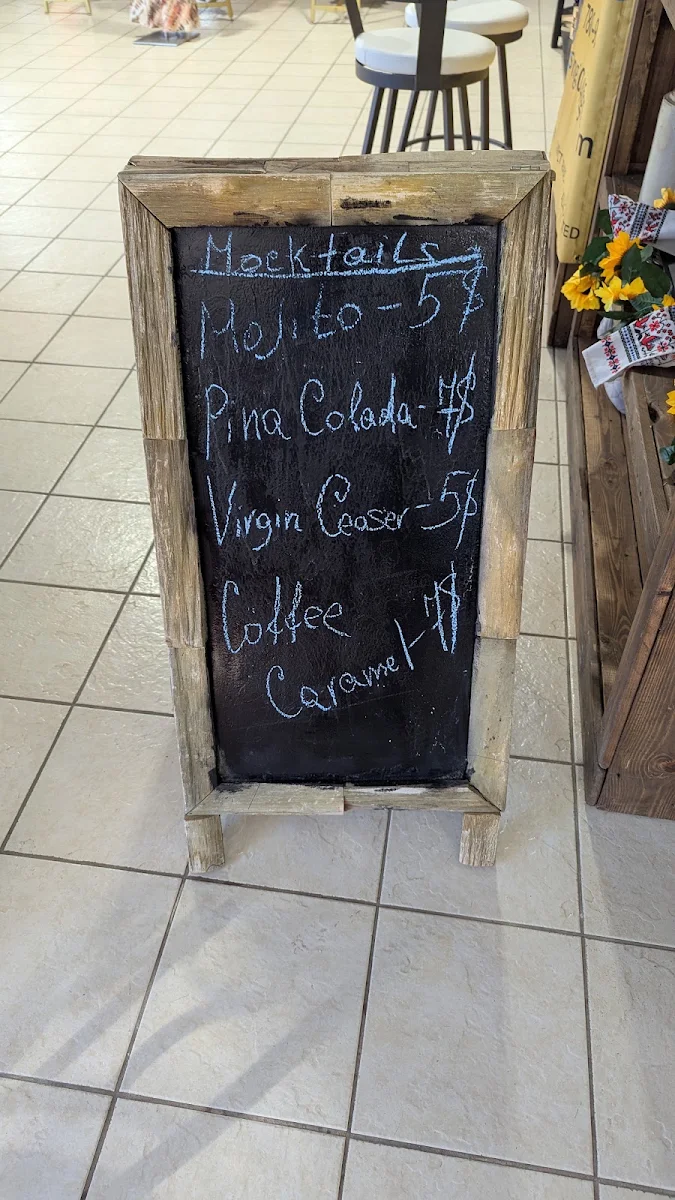 Mocktails
Mojito - 5$
Pina Colada - 7$
Virgin Ceaser - 5$
Coffee
Caramel - 7$